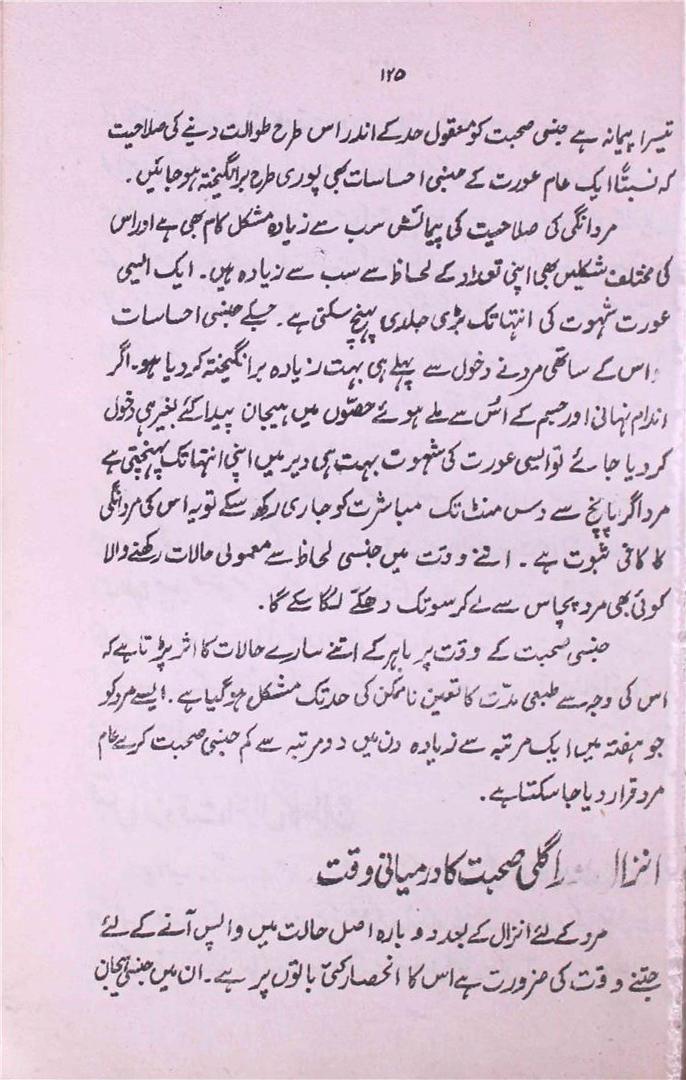 ۱۲۵
تیسرا پیمانہ ہے جنسی صحبت کو معقول حد کے اندر اس طرح طوالت دینے کی صلاحیت
کہ نسبتاً ایک عام عورت کے جنسی احساسات بھی پوری طرح برانگیختہ ہو جائیں۔
مردانگی کی صلاحیت کی پیمائش سب سے زیادہ مشکل کام بھی ہے اور اس
کی مختلف شکلیں بھی اپنی تعداد کے لحاظ سے سب سے زیادہ ہیں۔ ایک ایسی
عورت شہوت کی انتہا تک بڑی جلدی پہنچ سکتی ہے۔ جسکے جنسی احساسات
اس کے ساتھی مرد نے دخول سے پہلے ہی بہت زیادہ برانگیختہ کر دیا ہو۔ اگر
اندام نہانی اور جسم کے اُس سے ملے ہوئے حصّوں میں ہیجان پیدا کئے بغیر ہی دخول
کر دیا جائے تو ایسی عورت کی شہوت بہت ہی دیر میں اپنی انتہا تک پہنچتی ہے
مرد اگر پانچ سے دس منٹ تک مباشرت کو جاری رکھ سکے تو یہ اس کی مردانگی
کا کافی ثبوت ہے۔ اتنے وقت میں جنسی لحاظ سے معمولی حالات رکھنے والا
کوئی بھی مرد پچاس سے لے کر سو تک دھکے لگا سکے گا۔
جنسی صحبت کے وقت پر باہر کے اتنے سارے حالات کا اثر پڑتا ہے کہ
اس کی وجہ سے طبعی مدّت کا تعین ناممکن کی حد تک مشکل ہو گیا ہے۔ ایسے مرد کو
جو ہفتہ میں ایک مرتبہ سے زیادہ دن میں دو مرتبہ سے کم جنسی صحبت کرے عام
مرد قرار دیا جا سکتا ہے۔
انزال اگلی صحبت کا درمیانی وقت
مرد کے لئے انزال کے بعد دوبارہ اصل حالت میں واپس آنے کے لئے
جتنے وقت کی ضرورت ہے اس کا انحصار کئی باتوں پر ہے۔ ان میں جنسی ہیجان